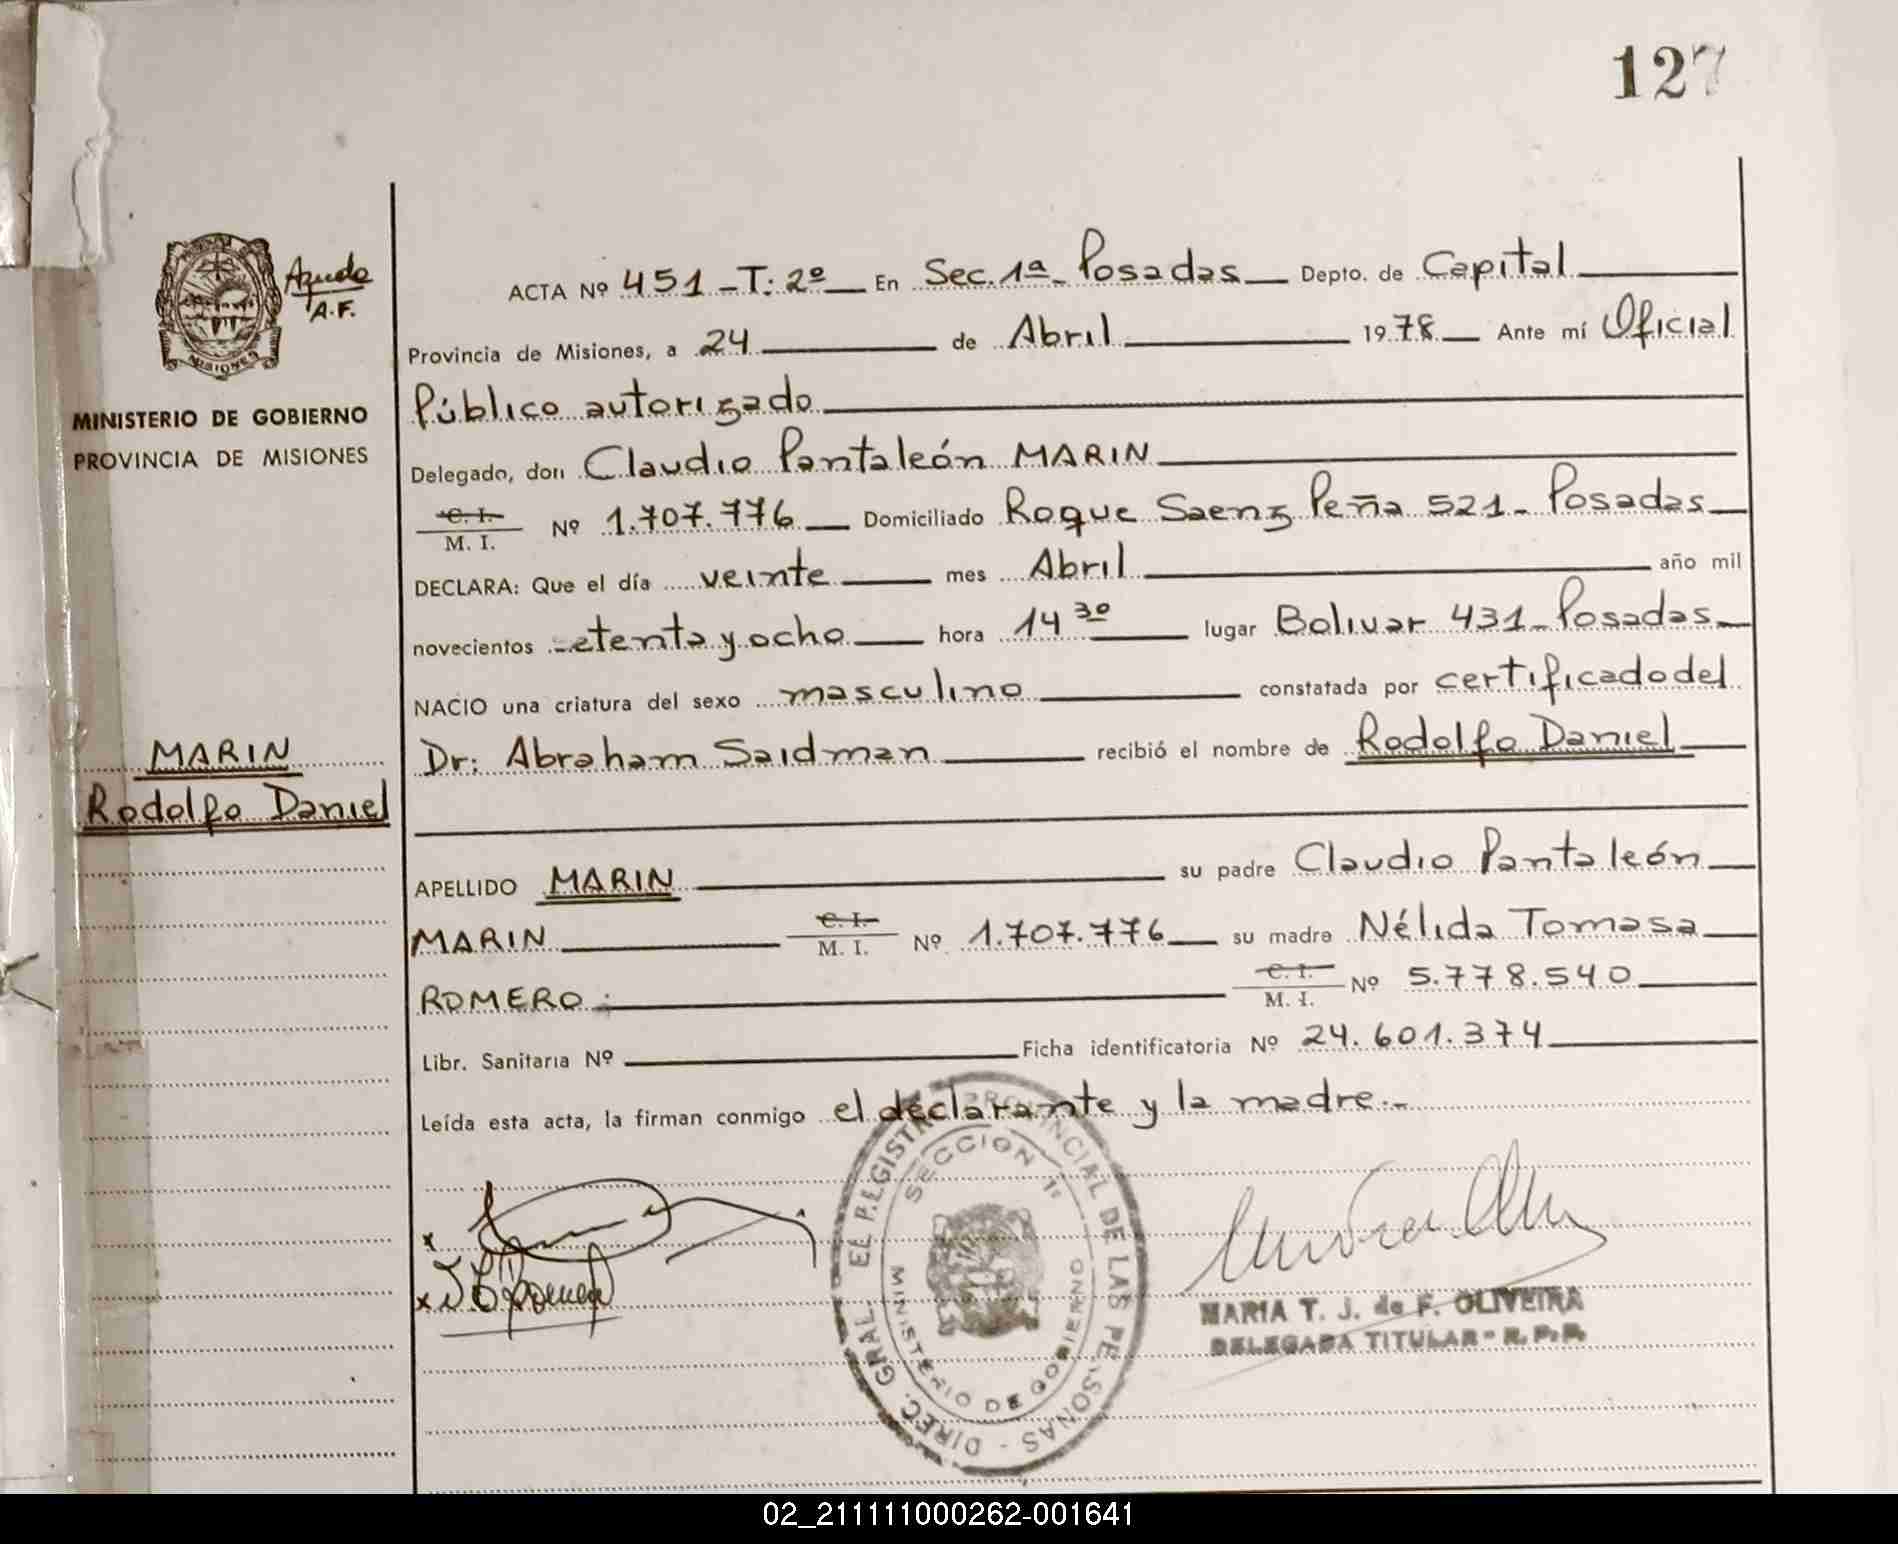 127
Ayudo
A.F.
MISIONES
MINISTERIO DE GOBIERNO
PROVINCIA DE MISIONES
MARIN
Rodolfo Daniel
ACTA Nº 451 - T: 2º En Sec. 1ª - Posadas Depto. de Capital
Provincia de Misiones, a 24 de Abril 1978 Ante mí Oficial
Público autorizado
Delegado, don Claudio Pantaleón MARIN
C. I.
M. I. Nº 1.707.776 Domiciliado Roque Saenz Peña 521 - Posadas
DECLARA: Que el día veinte mes Abril año mil
novecientos setenta y ocho hora 14 30 lugar Bolivar 431 - Posadas
NACIO una criatura del sexo masculino constatada por certificado del
Dr: Abraham Saidman recibió el nombre de Rodolfo Daniel
APELLIDO MARIN su padre Claudio Pantaleón
MARIN C. I. M. I. Nº 1.707.776 su madre Nélida Tomasa
ROMERO. C. I. M. I. Nº 5.778.540
Libr. Sanitaria Nº Ficha identificatoria Nº 24.601.374
Leída esta acta, la firman conmigo el declarante y la madre.-
DIREC. GRAL. DEL REGISTRO PROVINCIAL DE LAS PERSONAS -
SECCION 1º
MINISTERIO DE GOBIERNO
MARIA T. J. de F. OLIVEIRA
DELEGADA TITULAR - R. P. P.
02_211111000262-001641